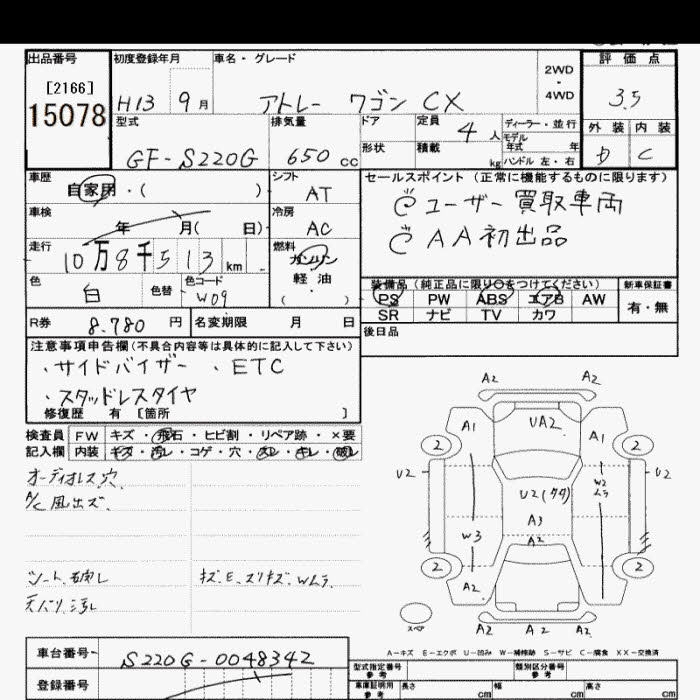 出品番号 初度登録年月 車名・グレード 評価点
[2166]
15078
H13 9月 アトレー ワゴン CX 2WD・4WD 3.5
型式 排気量 ドア 定員 4人 ディーラー・並行 外装 内装
形状 積載 kg モデル年式 年 ハンドル 左・右
GF-S220G 650cc D C
車歴 シフト セールスポイント(正常に機能するものに限ります)
自家用・( ) AT
ユーザー買取車両
車検 冷房
年 月( 日) AC
AA初出品
走行 燃料
10万8千513km ガソリン
軽油
( )
色 色替 色コード 装備品(純正品に限り○をつけてください) 新車保証書
白 W09 PS PW ABS エアB AW 有・無
SR ナビ TV カワ
R券 8.780円 名変期限 月 日 後日品
注意事項申告欄(不具合内容等は具体的に記入して下さい)
・サイドバイザー ・ETC
・スタッドレスタイヤ
修復歴 有 [箇所 ]
検査員 FW キズ・飛石・ヒビ割・リペア跡・×要
記入欄 内装 キズ・汚レ・コゲ・穴・スレ・キレ・破レ
オーディオレス穴
A/C風出ズ
シート破レ キズ、E、スリキズ、Wムラ
天バリ汚レ
A2 A2
A1 UA2 A1
2 2
U2 U2
U2(タタ) W2
ムラ
A3
W3 A2
2 2
A2
スペア
A2 A2 A2
A-キズ E-エクボ U-凹み W-補修跡 S-サビ C-腐食 XX-交換済
車台番号 S220G-0048342
型式指定番号 参考 類別区分番号 参考
登録番号
車庫証明用 参考 長さ cm 幅 cm 高さ cm